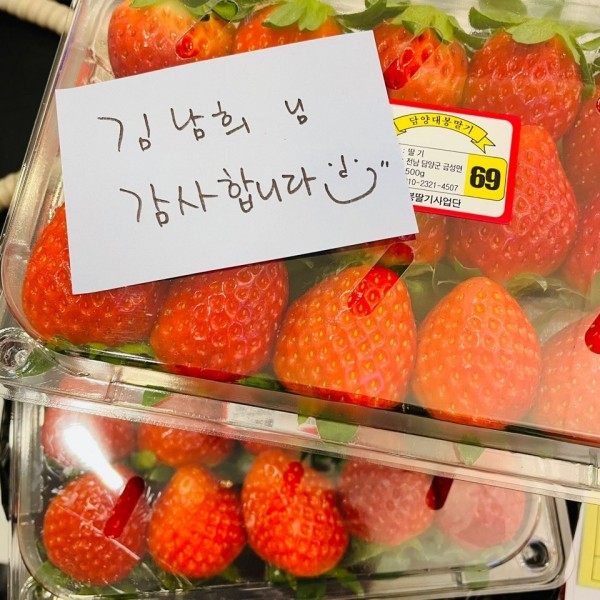 김남희 님
감사합니다
담양대봉딸기
딸기
전남 담양군 금성면
500g
10-2321-4507
69
딸기사업단